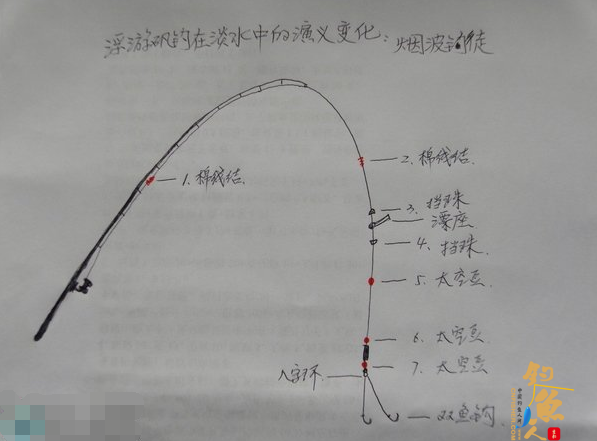 浮游矶钓在淡水中的演义变化:烟波钓徒
1.棉线结
2.棉线结
3.挡珠
漂座
4.挡珠
5.太空豆
6.太空豆
7.太空豆
八字环
双鱼钩
钓鱼人